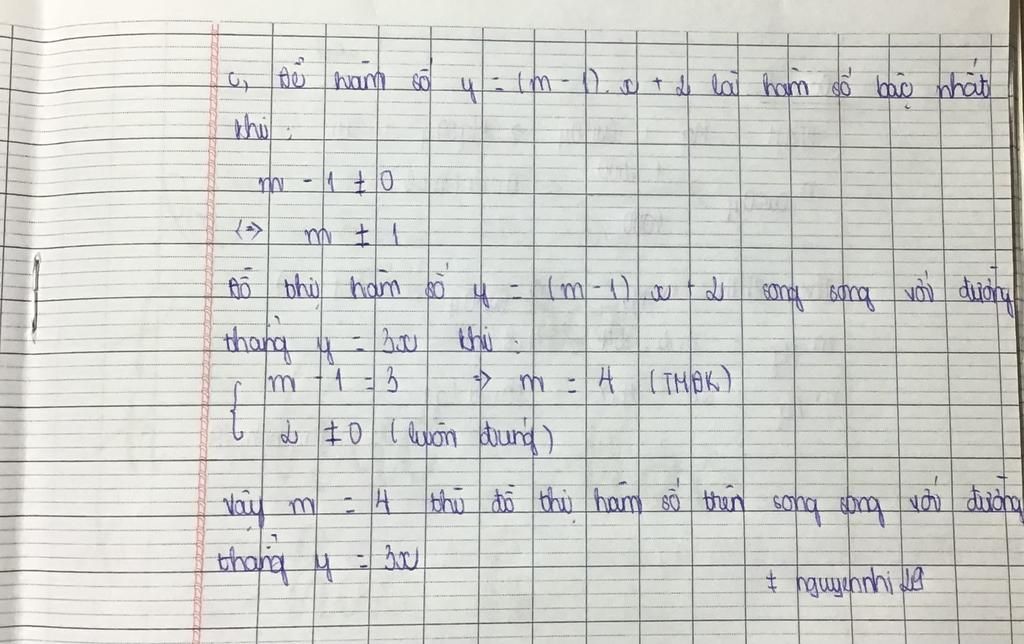 c, Để hàm số y = (m - 1). x + 2 là hàm số bậc nhất
khi :
m - 1 ≠ 0
<=> m ≠ 1
Đồ thị hàm số y = (m - 1) x + 2 song song với đường
thẳng y = 3x khi :
{ m - 1 = 3 => m = 4 (TMĐK)
2 ≠ 0 (luôn đúng)
Vậy m = 4 thì đồ thị hàm số trên song song với đường
thẳng y = 3x
± nguyennhi29